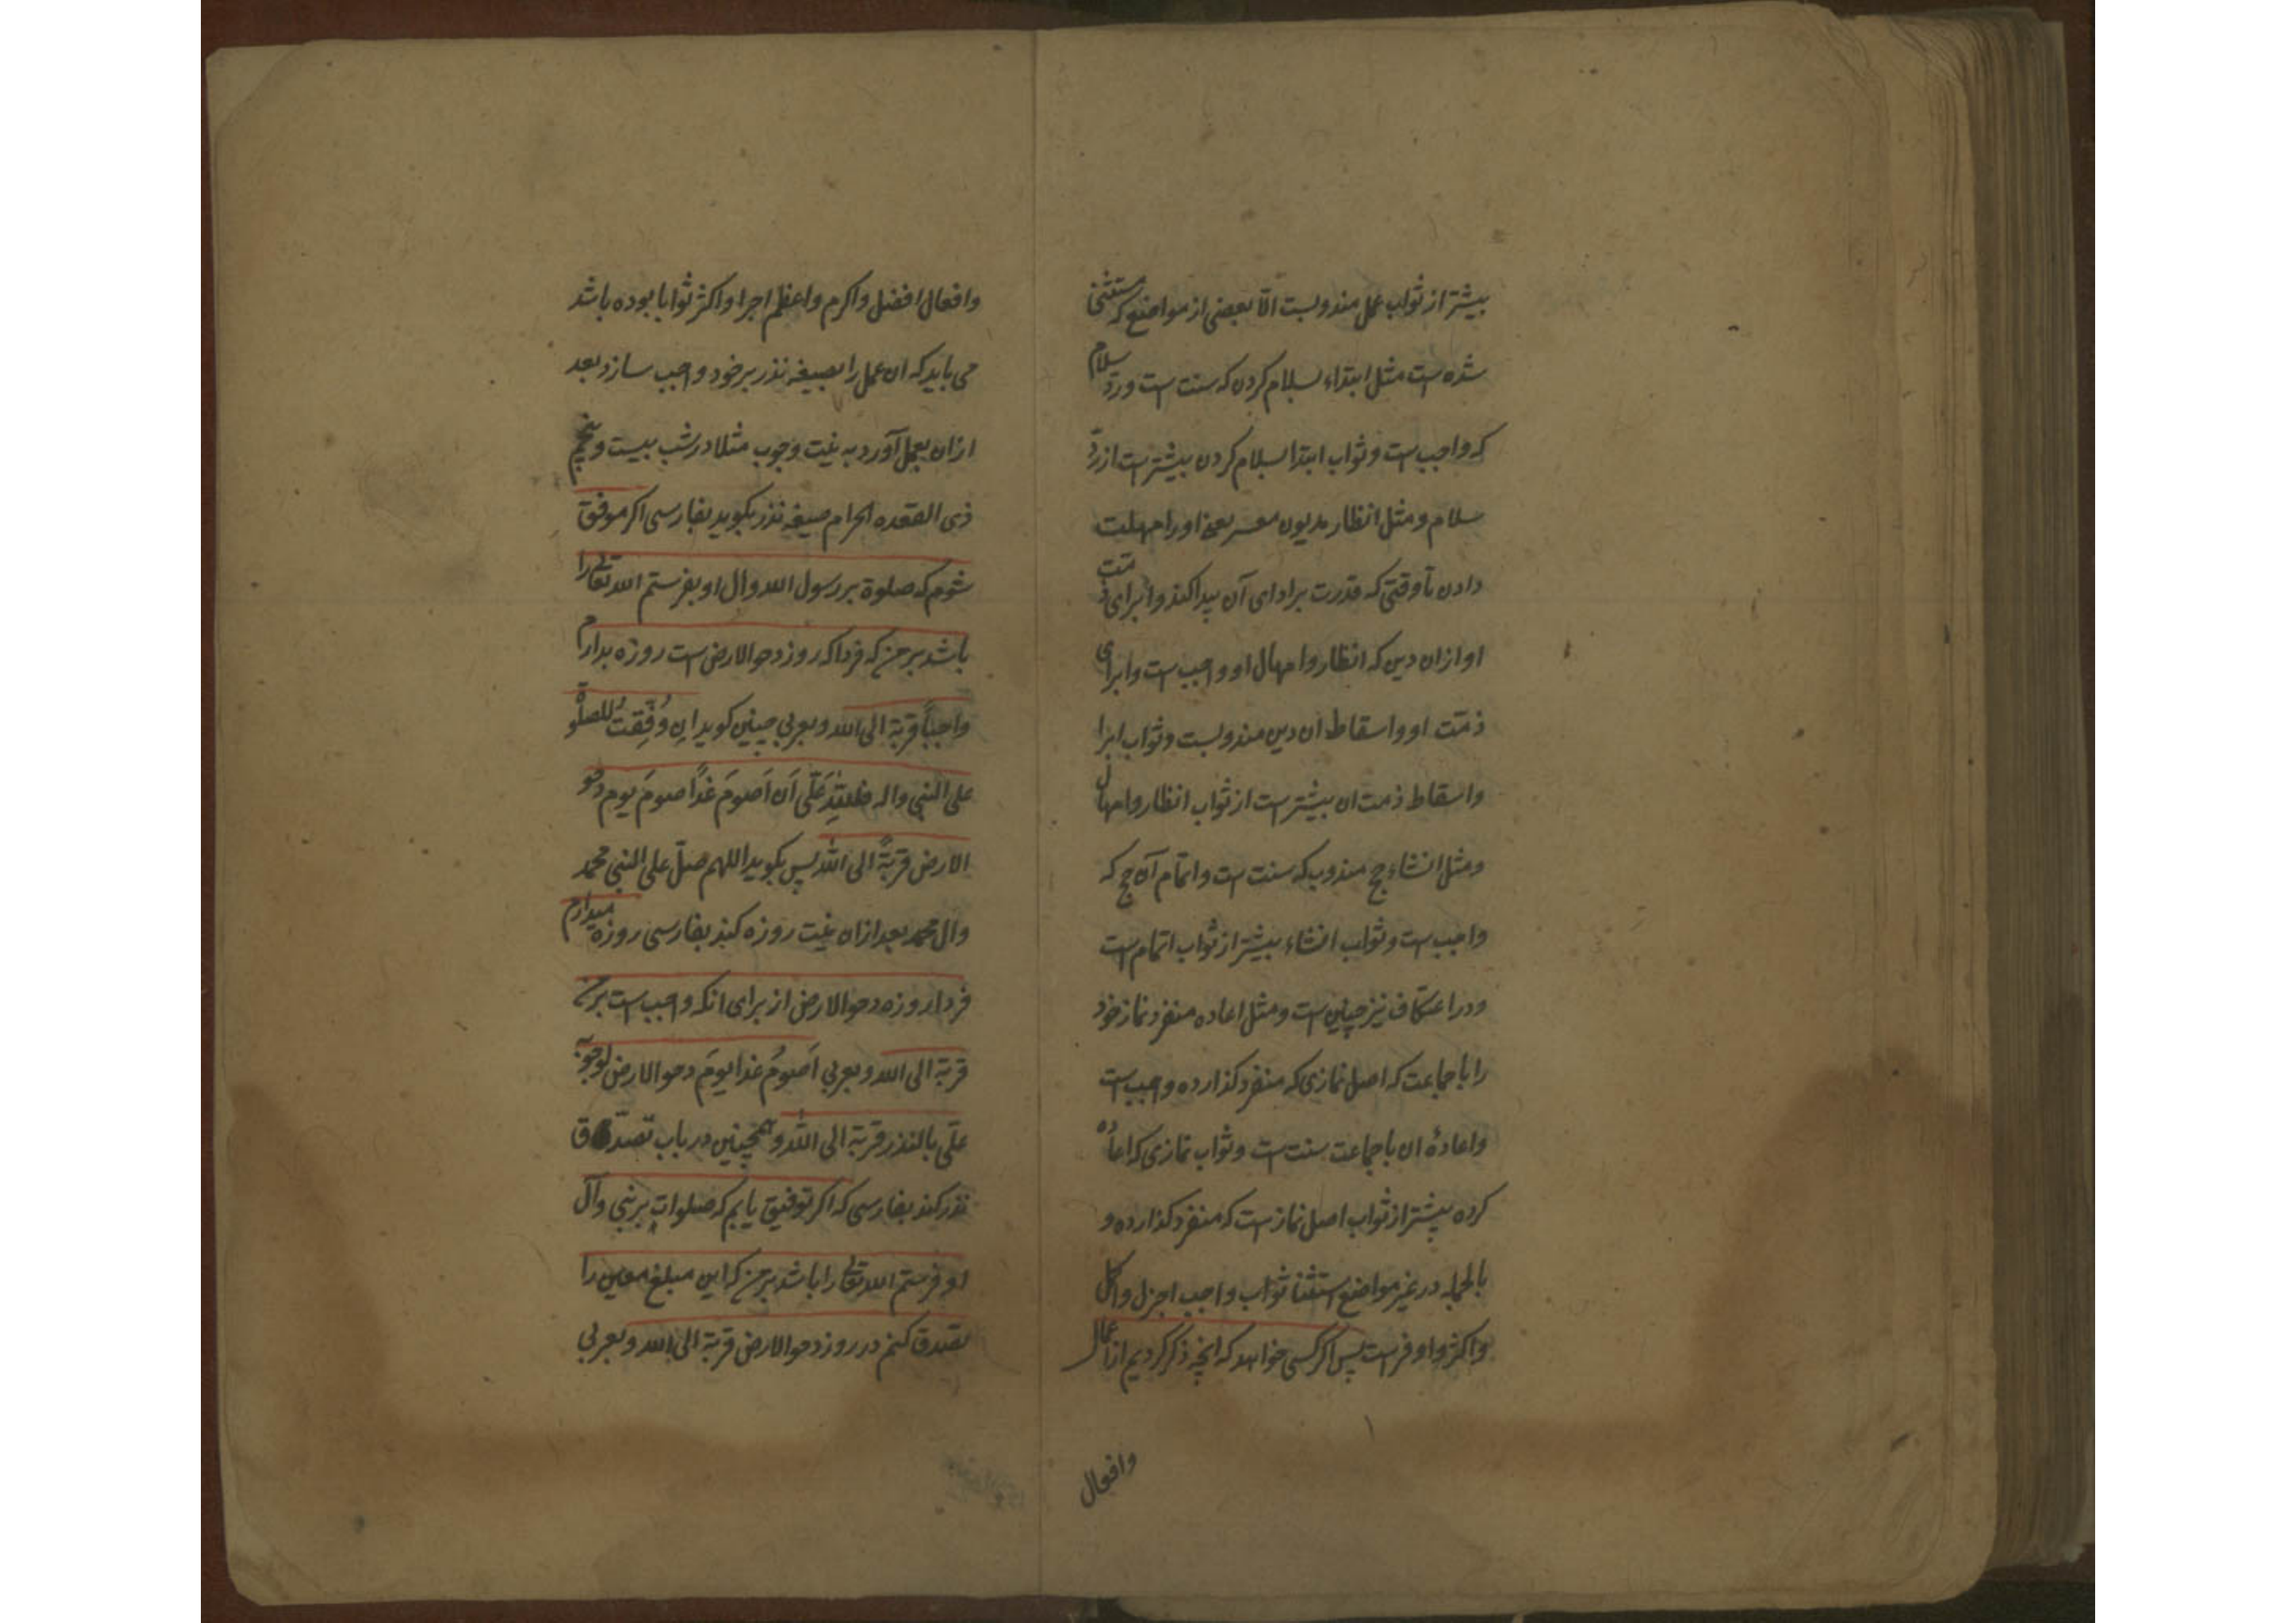 بیشتر از ثواب عمل مندوبست الّا بعضی از مواضع که مستثنی
شده است مثل ابتداء بسلام کردن که سنت است و ردّ سلام
که واجب است و ثواب ابتدا بسلام کردن بیشتر است از ردّ
سلام و مثل انظار مدیون معسر یعنی اورا مهلت
دادن تا وقتی که قدرت بر ادای آن پیدا کند و ابرای ذمت
او ازان دین که انظار و امهال او واجب است و ابرای
ذمّت او و اسقاط ان دین مندوبست و ثواب ابرا
و اسقاط ذمت ان بیشتر است از ثواب انظار و امهال
و مثل انشاء حج مندوب که سنت است و اتمام آن حج که
واجب است و ثواب انشاء بیشتر از ثواب اتمام است
و در اعتکاف نیز چنین است و مثل اعاده منفرد نماز خود
را با جماعت که اصل نمازی که منفرد کذارده واجب است
و اعادهٔ ان با جماعت سنت است و ثواب نمازی که اعاده
کرده بیشتر از ثواب اصل نماز است که منفرد کذارده و
بالجمله در غیر مواضع استثنا ثواب واجب اجزل و اکمل
و اکثر و اوفر است پس اکر کسی خواهد که انچه ذکر کردیم از اعمال
وافعال
وافعال افضل و اکرم و اعظم اجرا و اکثر ثوابا بوده باشد
می باید که ان عمل را بصیغه نذر بر خود واجب سازد بعد
ازان بعمل آورد به نیت وجوب مثلا در شب بیست و پنجم
ذی القعده الحرام صیغه نذر بکوید بفارسی اکر موفق
شوم که صلوة بر رسول الله و ال او بفرستم الله تعالی را
باشد بر من که فردا که روز دحو الارض است روزه بدارم
واجباً قربة الی الله و بعربی چنین کوید ان وُفِّقتُ للصلوة
علی النبی واله فلله عَلَّی اَن اَصومَ غَداً صومَ یوم دحو
الارض قربةً الی الله پس بکوید اللهم صلّ علی النبی محمد
وال محمد بعد ازان نیت روزه کند بفارسی روزه میدارم
فردا روزه دحو الارض از برای انکه واجب است بر من
قربة الی الله و بعربی اَصومُ غدا یومَ دحو الارض لوجوبه
علّی بالنذر قربة الی الله و همچنین در باب تصدق
نذر کند بفارسی که اکر توفیق یابم که صلوات بر نبی وآل
او فرستم الله تعالی را باشد بر من که این مبلغ معین را
تصدق کنم در روز دحو الارض قربة الی الله و بعربی